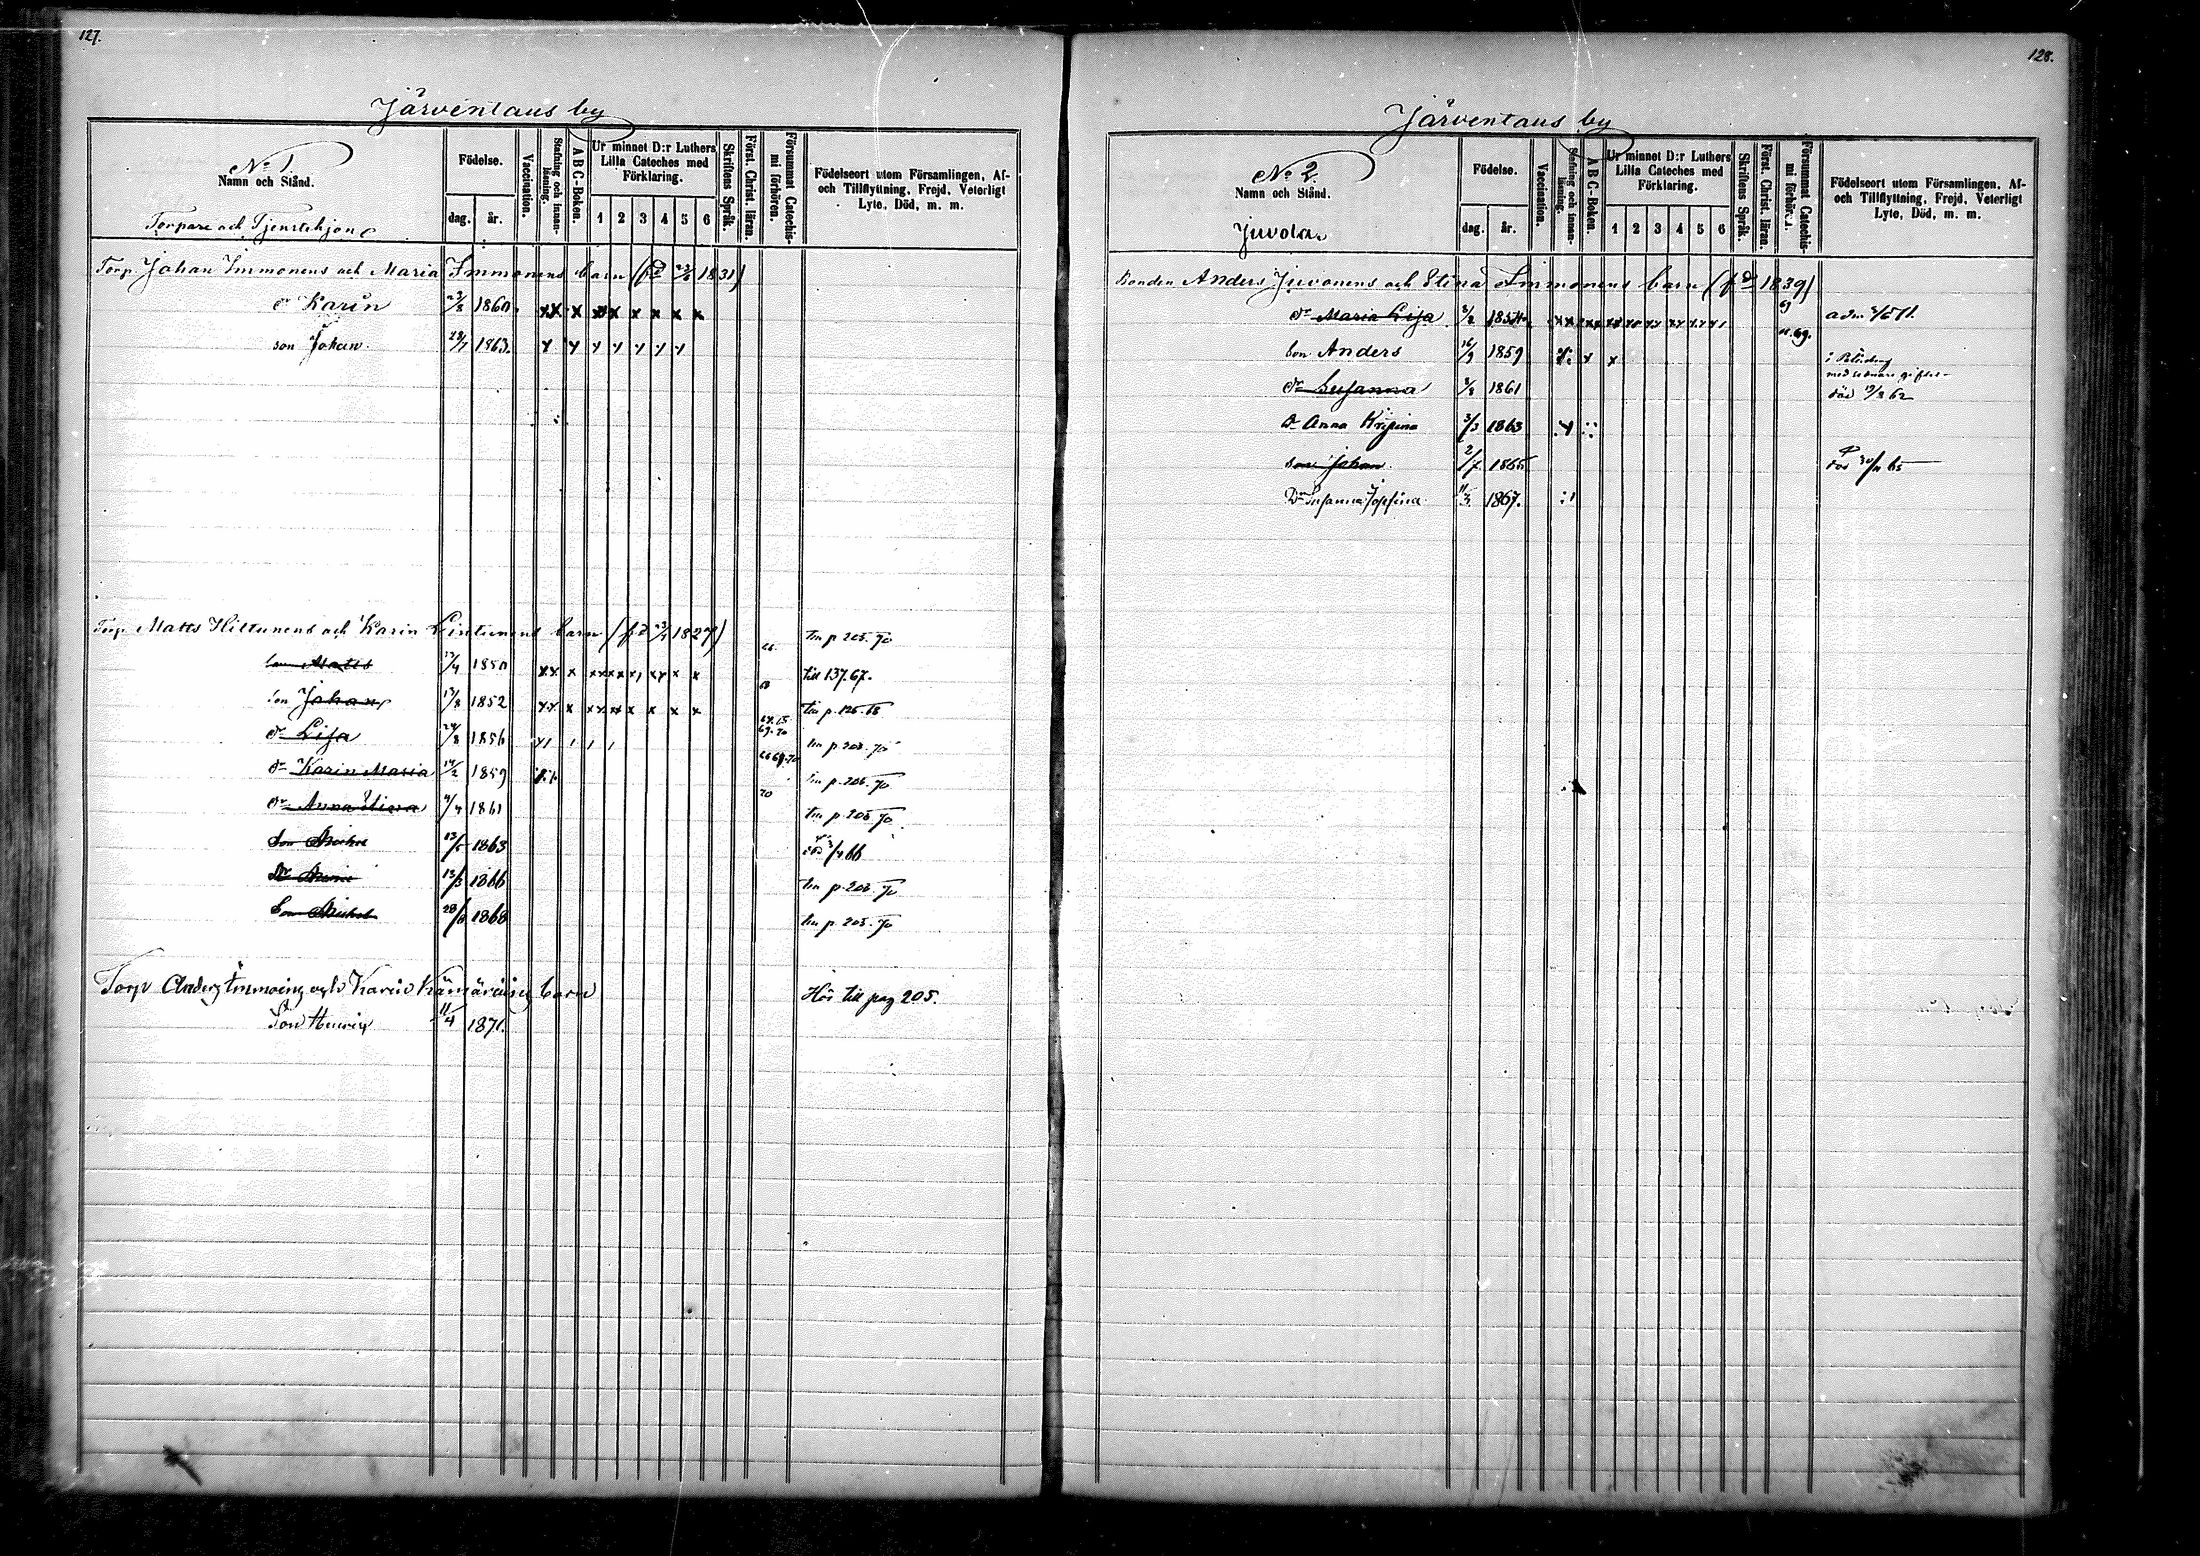 127.
Järventaus by
No 1.
Namn och Stånd.
Torpare och Tjenstehjon
Födelse.
dag. år.
Vaccination.
Stafning och innanläsning.
A B C-Boken.
Ur minnet D:r Luthers Lilla Cateches med Förklaring.
1 2 3 4 5 6
Skriftens Språk.
Först. Christ. läran.
Försummat Catechismi förhören.
Födelseort utom Församlingen, Af- och Tillflyttning, Frejd, Veterligt Lyte, Död, m. m.
Torp. Johan Immonens och Maria Immonens barn (fd 23/6 1831)
dr Karin 23/8 1860. xx x xx x x x x x
son Johan. 28/7 1863. y y y y y y y
Torp. Matts Hiltunens och Karin Lintunens barn (fd 1827) tm p 205. 70
son Matts 17/4 1850 xx x xx x x x x x x till 137. 67.
son Johan 17/8 1852 xx x xx xx x x x x tm p. 126. 68
dr Lisa 24/8 1856 tm p 203. 70
dr Karin Maria 14/2 1859 tm p. 205. 70
dr Anna Stina 4/4 1861 tm p 205. 70
Son 13/5 1863 död 3/4 66
Dr 13/3 1866 tm p. 203. 70
Son Michel 28/8 1868 tm p. 205. 70
Torp Anders Immoing och Karin Kämäräing barn Hör till pag 205.
Son Henrig 11/4 1871.
128.
Järventaus by
No 2.
Namn och Stånd.
Juvola.
Födelse.
dag. år.
Vaccination.
Stafning och innanläsning.
A B C-Boken.
Ur minnet D:r Luthers Lilla Cateches med Förklaring.
1 2 3 4 5 6
Skriftens Språk.
Först. Christ. läran.
Försummat Catechismi förhören.
Födelseort utom Församlingen, Af- och Tillflyttning, Frejd, Veterligt Lyte, Död, m. m.
Bonden Anders Juvonens och Stina Immonens barn (fd 1839)
dr Maria Lisa 1854. 69 adm.
Son Anders 16/9 1859 x x 69.
dr Susanna 1861 död 19/8 62
dr Anna Kristina 3/3 1863
son Johan. 2/7 1865 död 30/11 65
Dr Susanna Josefina 11/3 1867.